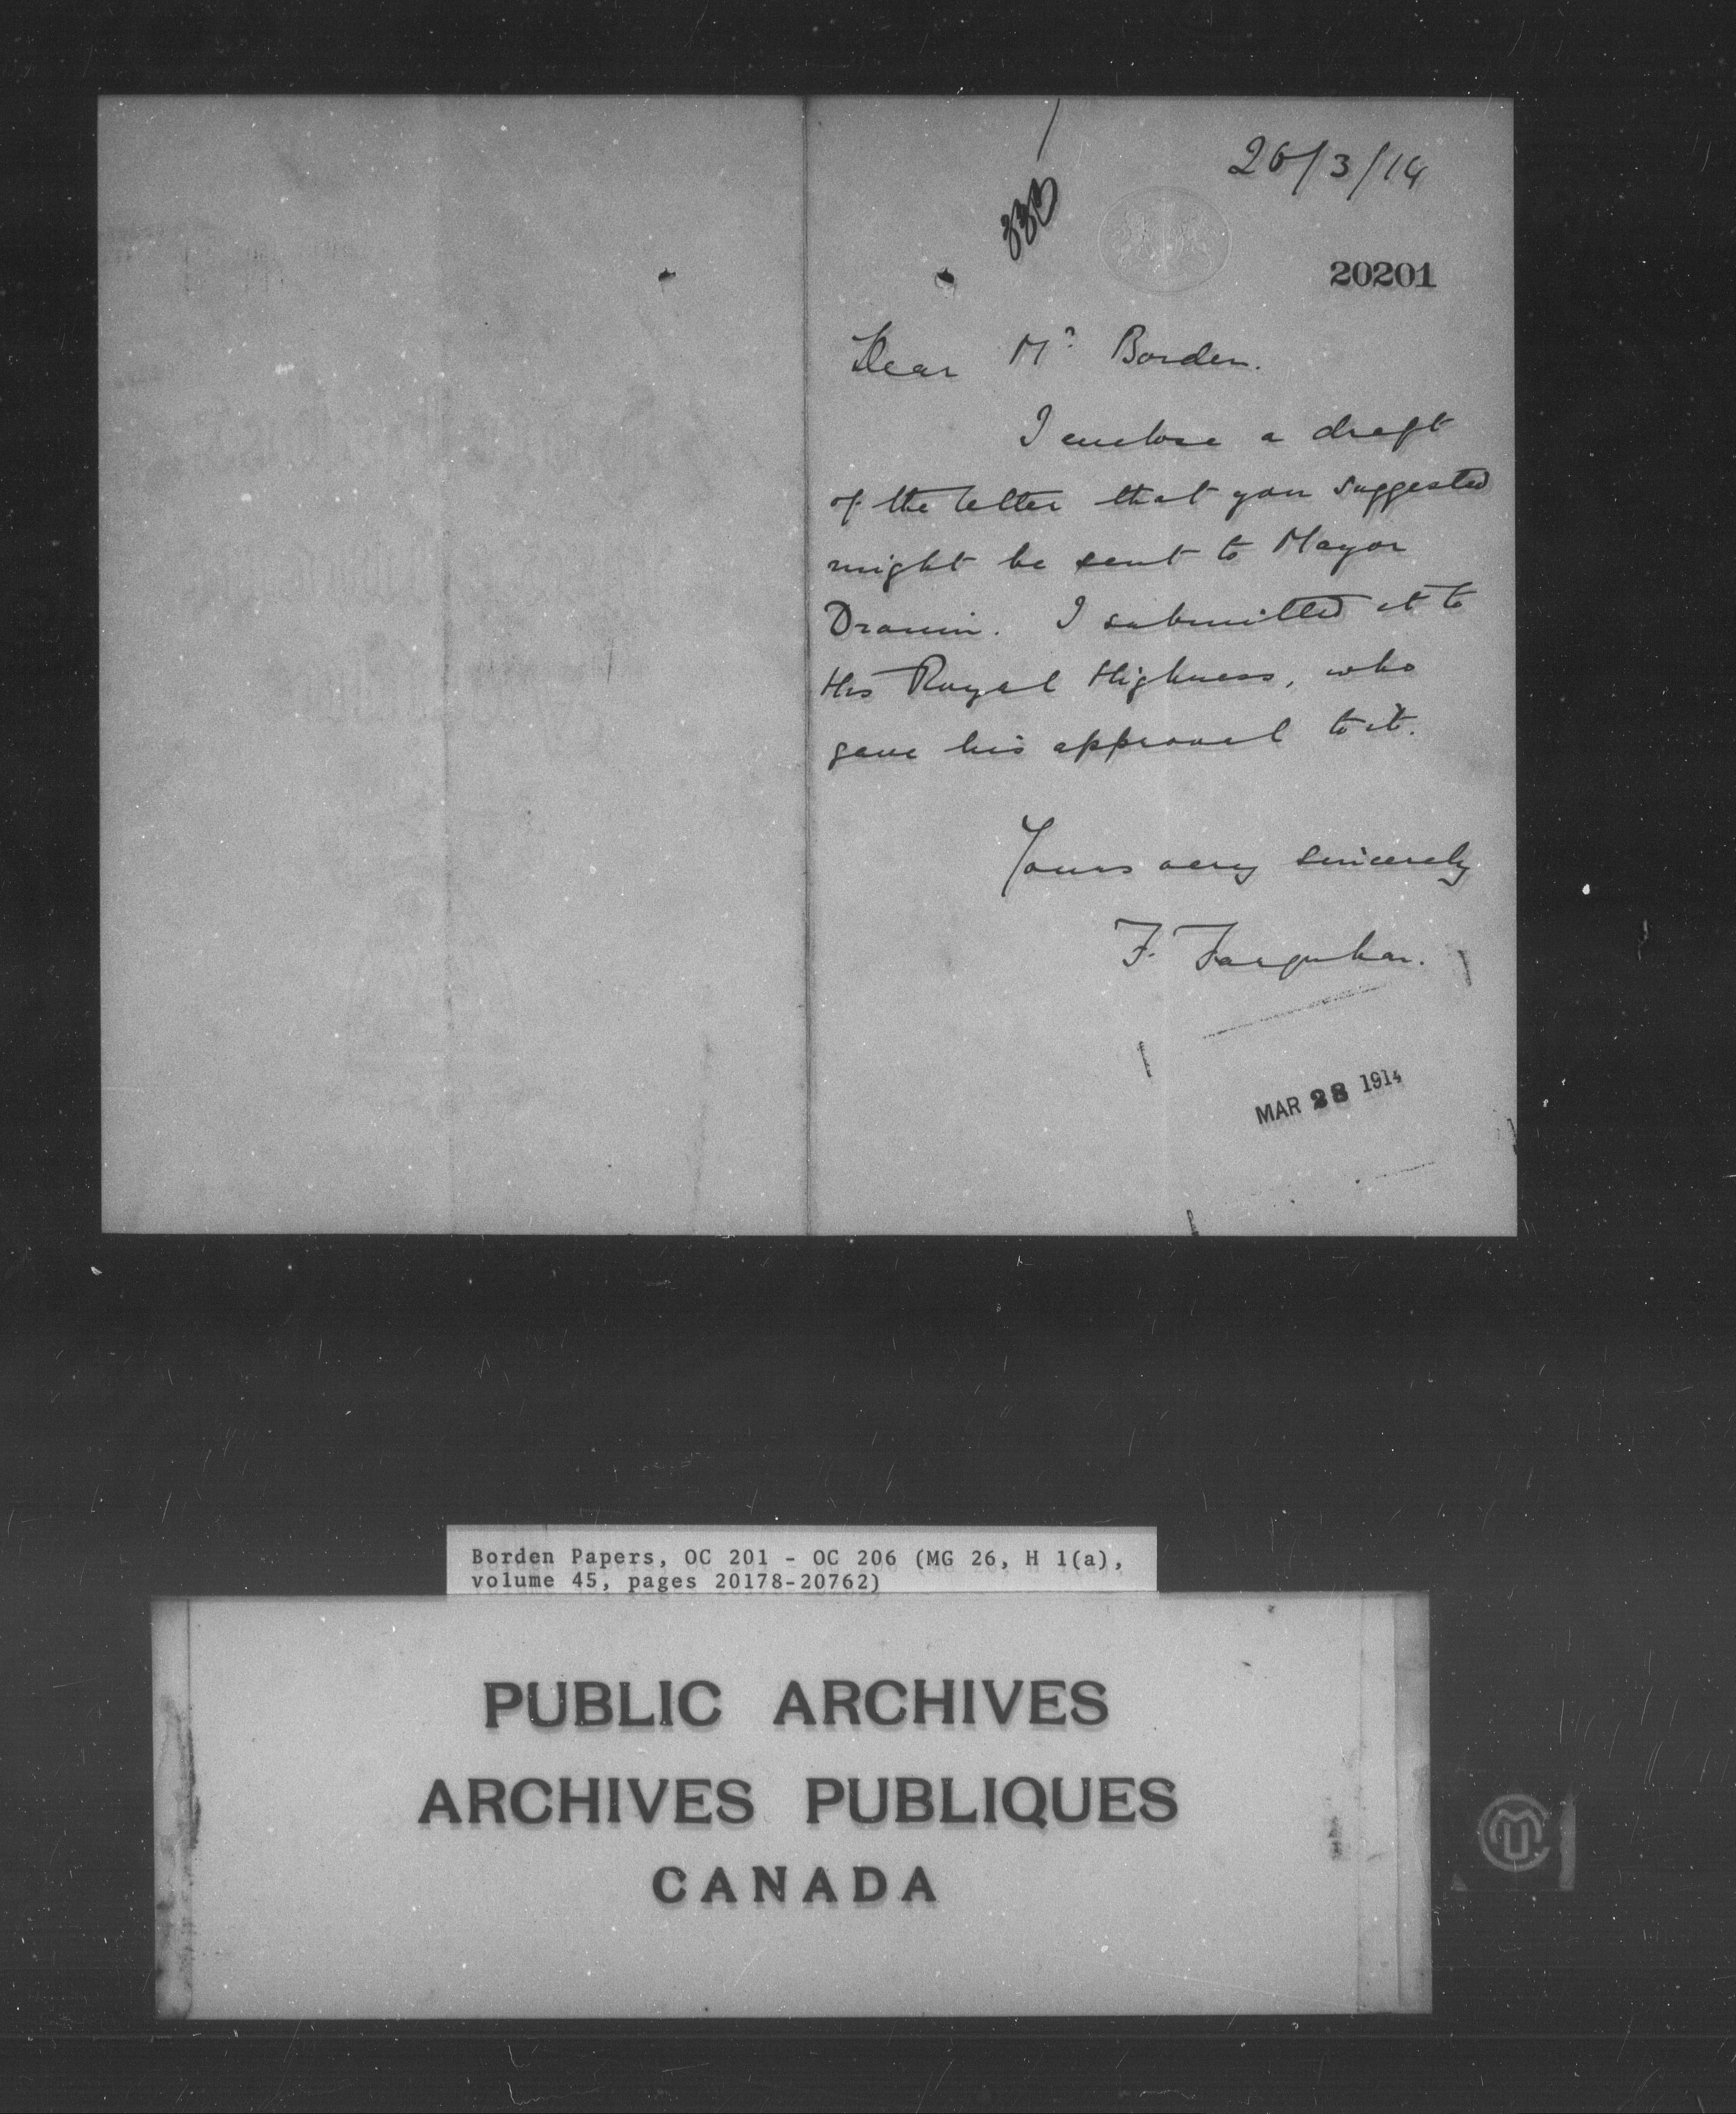 26/3/14
333
20201
Dear Mr Borden.
I enclose a draft
of the letter that you suggested
might be sent to Mayor
Drouin. I submitted it to
His Royal Highness, who
gave his approval to it.
Yours very sincerely
F. Farquhar.
MAR 28 1914
Borden Papers, OC 201 - OC 206 (MG 26, H 1(a),
volume 45, pages 20178-20762)
PUBLIC ARCHIVES
ARCHIVES PUBLIQUES
CANADA